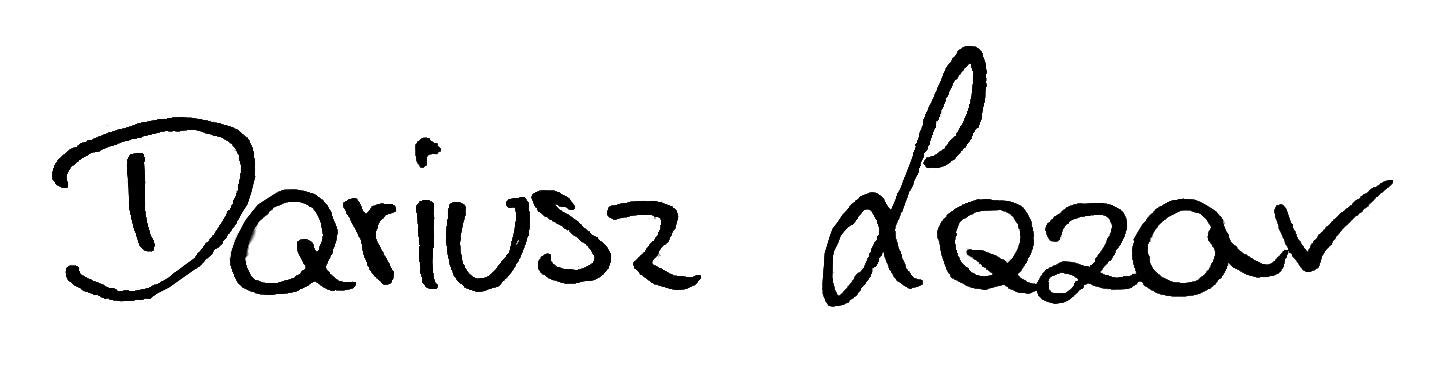 Dariusz Lazar